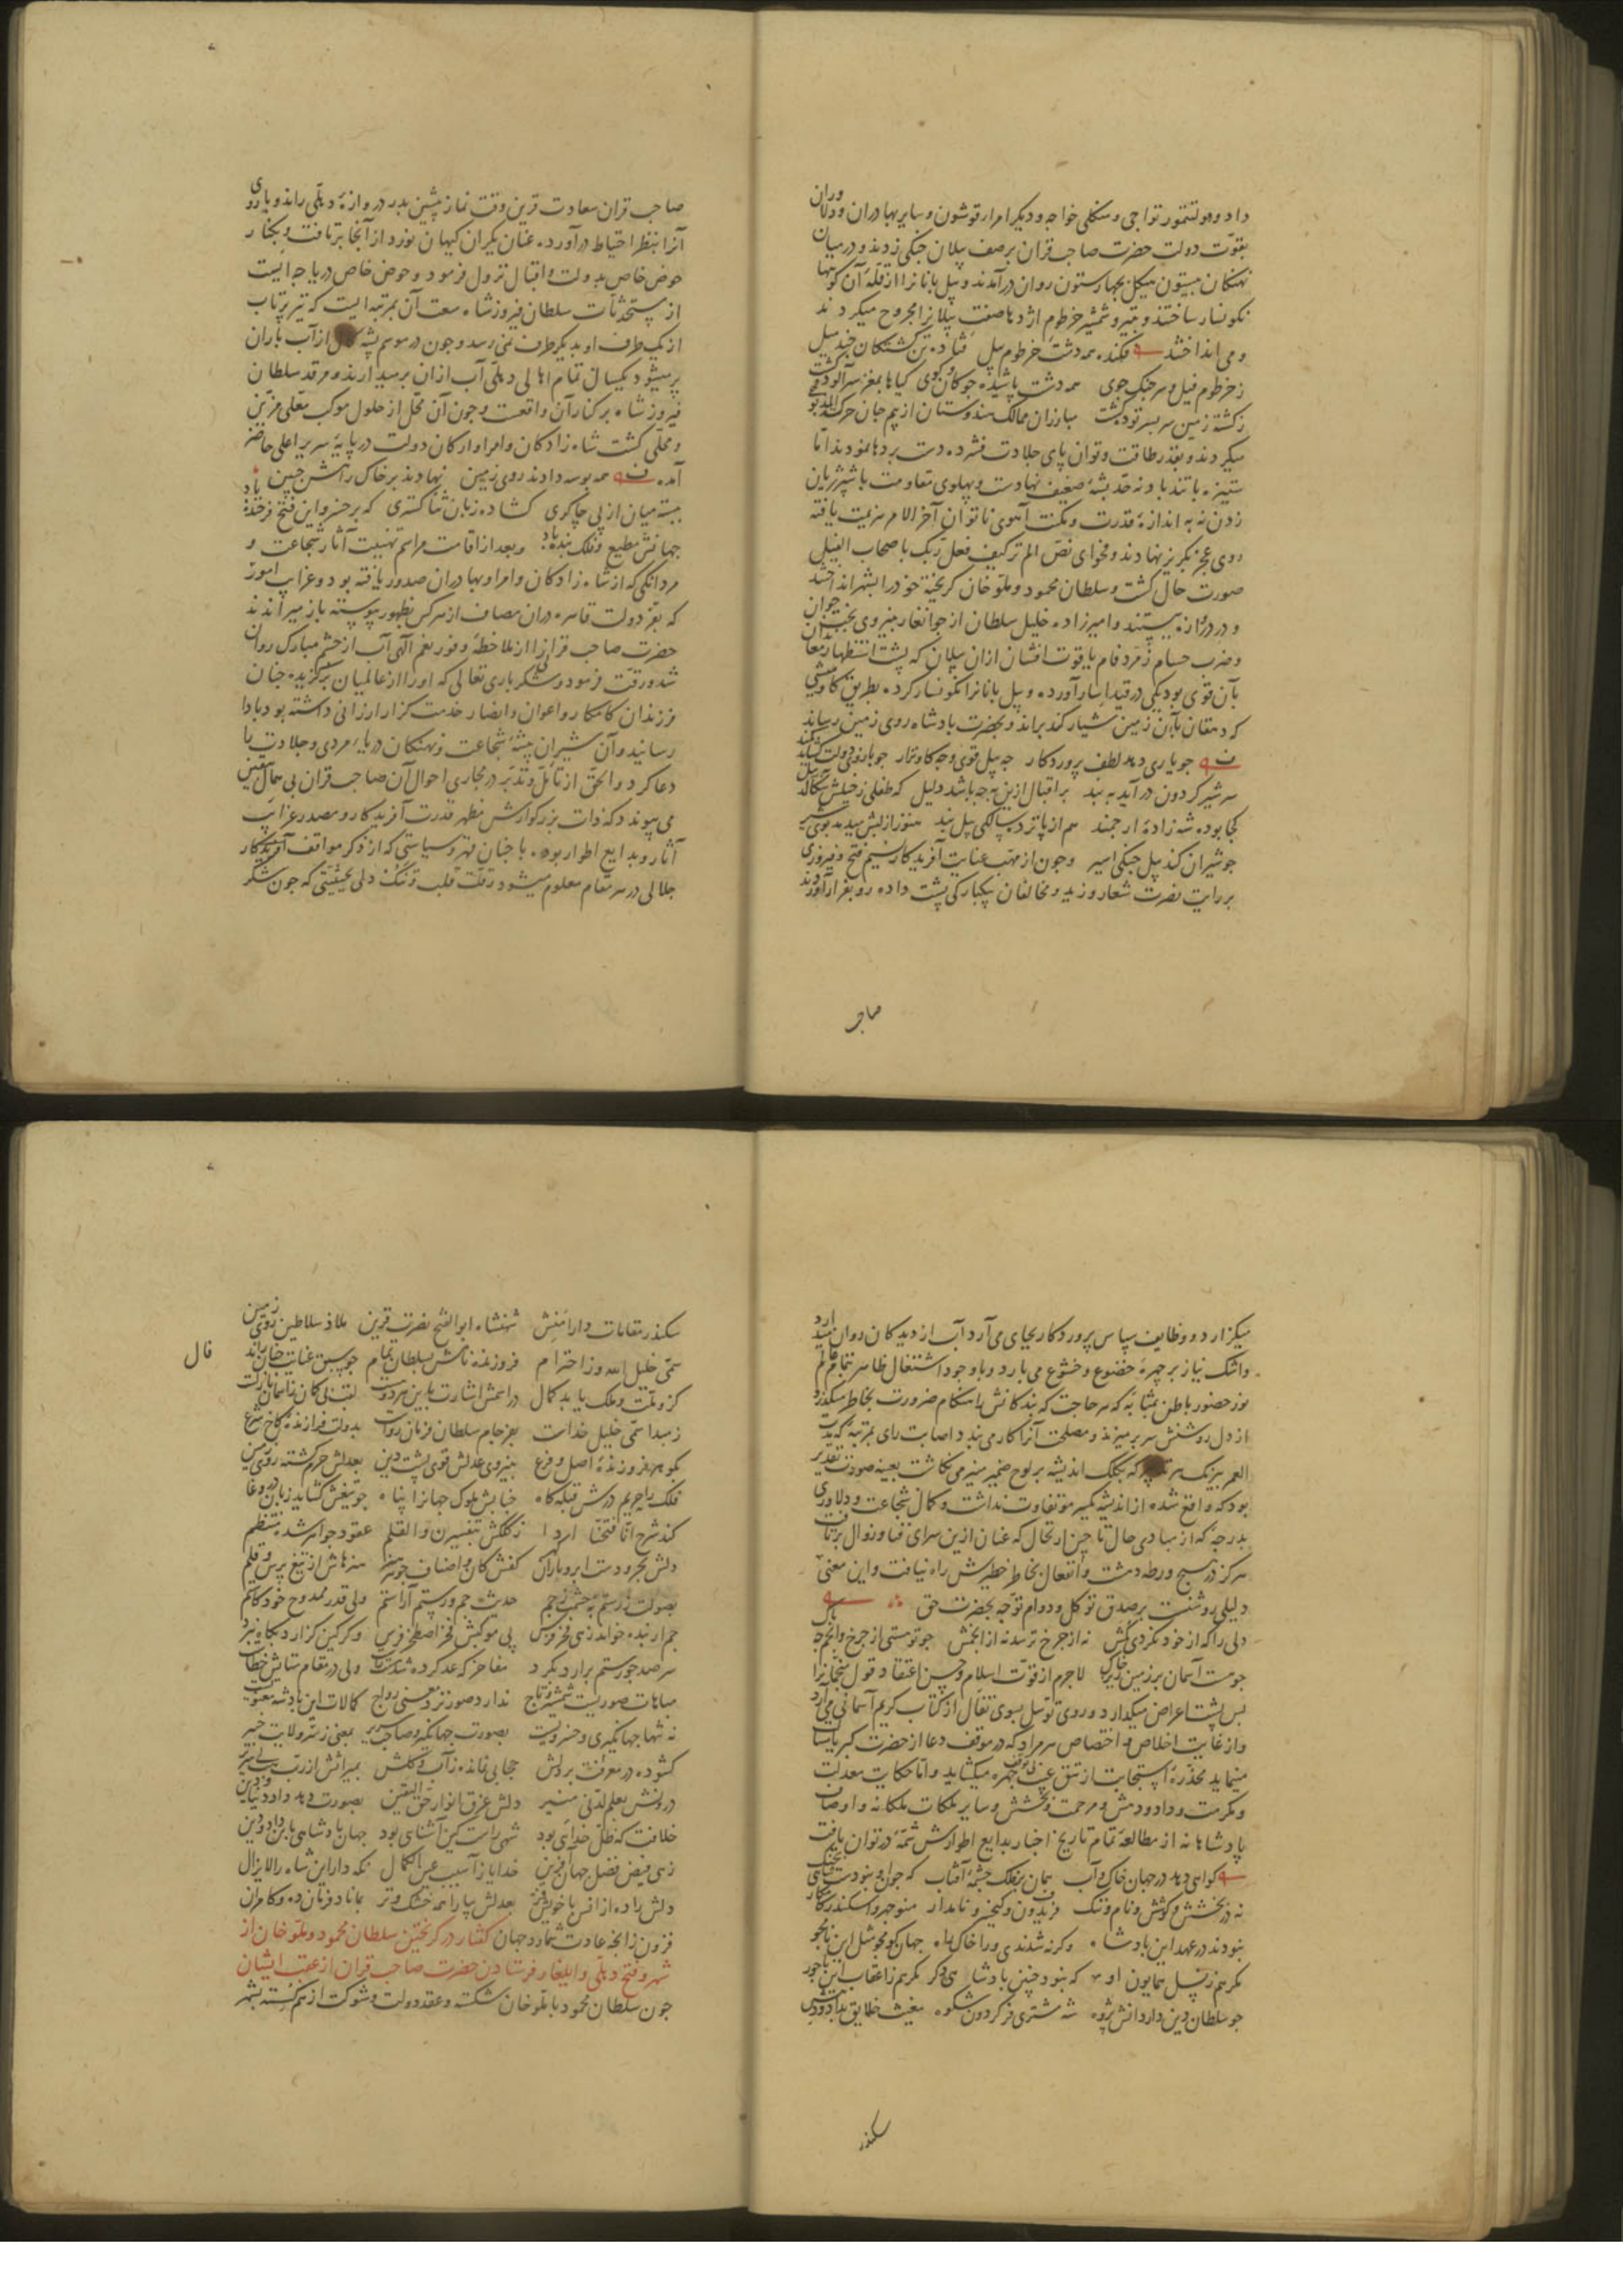 داد و دولتتمور تواجی و منکلی خواجه و دیکر امرا و قوشون و سایر بهادران و دلاوران
بقوّت دولت حضرت صاحب قران بر صف پیلان جنکی زدند و در میان
نهنکان بیستون هیکل بچهار ستون روان درآمدند و پیل بانانرا از قلّه آن کوهها
نکونسار ساختند و بتیر و شمشیر خرطوم اژدها صفت پیلانرا مجروح میکردند
و می انداختند فکنده همه دشت خرطوم پیل فتاده تن کشتکان چند میل
ز خرطوم فیل و سر جنک جوی همه دشت پاشیده چوکان و کوی کیاها بمغز سر آلوده کشت
ز کشته زمین سربسر توده کشت مبارزان ممالک هندوستان از بیم جان حرکة المذبوحی
میکردند و بقدر طاقت و توان پای جلادت فشرده دست بردها نمودند امّا
ستیزه با تندباد نه حدّ پشّهٔ ضعیف نهادست و پهلوی مقاومت با شیر ژیان
زدن نه به اندازهٔ قدرت و مکنت آهوی ناتوان آخر الامر هزیمت یافته
روی عجز بکریز نهادند و فحوای نصّ الم تر کیف فعل ربک باصحاب الفیل
صورت حال کشت و سلطان محمود و ملّوخان کریخته خود را بشهر انداختند
و دروازه ببستند و امیرزاده خلیل سلطان از جوانغار بنیروی بخت جوان
و ضرب حسام زمرّد فام یاقوت افشان از ان پیلان که پشت استظهار معاندان
بآن قوی بود یکی در قید اسار آورده و پیل بانانرا نکونسار کرده بطریق کاومیشی
که دهقان بآن زمین شیار کند براند و بحضرت پادشاه روی زمین رساند
چو یاری دهد لطف پروردکار چه پیل قوی و چه کاو نزار چو بازوی دولت کشاید کمند
سر شیر کردون درآید به بند بر اقبال ازین به چه باشد دلیل که طفلی ز خیلش شکالد
کجا بوده شه زادهٔ ارجمند هم از پانزده سالکی پیل بند هنوز از لبش میدمد بوی شیر
چو شیران کند پیل جنکی اسیر و چون از مهبّ عنایت آفریدکار نسیم فتح و فیروزی
بر رایت نصرت شعار وزید و مخالفان بیکبارکی پشت داده رو بفرار آوردند
صاحب
صاحب قران سعادت قرین وقت نماز پیشین بدر دروازهٔ دهلی راند و باروی
آنرا بنظر احتیاط درآورده عنان یکران کیهان نورد از آنجا برتافت و بکنار
حوض خاص بدولت و اقبال نزول فرمود و حوض خاص دریاچه ایست
از مستحدثات سلطان فیروزشاه سعت آن بمرتبه ایست که تیر پرتاب
از یک طرف او بدیکر طرف نمی رسد و چون در موسم پشه کال از آب باران
پر میشود یکسال تمام اهالی دهلی آب ازان برمیدارند و مرقد سلطان
فیروزشاه بر کنار آن واقعست و چون آن محّل از حلول موکب معلّی مزیّن
و محلّی کشت شاه زادکان و امرا و ارکان دولت در پایهٔ سریر اعلی حاضر
آمده همه بوسه دادند روی زمین نهادند بر خاک راهش جبین
ببسته میان از پی چاکری کشاده زبان ثنا کستری که بر خسرو این فتح فرخنده باد
جهانش مطیع و فلک بنده باد و بعد از اقامت مراسم تهنیت آثار شجاعت و
مردانکی که از شاه زادکان و امرا و بهادران صدور یافته بود و غرایب امور
که بفرّ دولت قاهره دران مصاف از هر کس بظهور پیوسته باز میراندند
حضرت صاحب قرانرا از ملاحظهٔ وفور نعم الهی آب از چشم مبارک روان
شد و رقّت فرمود و شکر باری تعالی که او را از عالمیان برکزیده چنان
فرزندان کامکار و اعوان و انصار خدمت کزار ارزانی داشته بود بادا
رسانید و آن شیران بیشهٔ شجاعت و نهنکان دریاء مردی و جلادت را
دعا کرد و الحق از تأمّل و تدبّر در مجاری احوال آن صاحب قران بی همال یقین
می پیوندد که ذات بزرکوارش مظهر قدرت آفریدکار و مصدر غرایب
آثار و بدایع اطوار بوده با چنان قهر و سیاستی که از ذکر مواقف آفریدکار
جلالی در هر مقام معلوم میشود رقّت قلب و تنک دلی بحیثیتی که چون شکر
میکزارد و وظایف سپاس پروردکار بجای می آرد آب از دیدکان روان میدارد
و اشک نیاز بر چهرهٔ خضوع و خشوع می بارد و با وجود اشتغال ظاهر بتمام عالم
نور حضور باطن بمثابه که هر حاجت که بندکانش را هنکام ضرورت بخاطر میکذرد
از دل روشنش سر بر میزند و مصلحت آنرا کار می بندد و اصابت رای بمرتبهٔ که مدّت
العمر بیرنک هر تدبیر که بکلک اندیشه بر لوح ضمیر منیر می نکاشت بعینه صورت تقدیر
بود که واقع شده از اندیشه یکسر مو تفاوت نداشت و کمال شجاعت و دلاوری
بدرجهٔ که از مبادی حال تا حین ارتحال که عنان ازین سرای فنا و زوال برتافت
هرکز در هیچ ورطه دهشت و انفعال بخاطر خطیرش راه نیافت و این معنی
دلیلی روشنست بر صدق توکل و دوام توّجه بحضرت حق
دلی را که از خود نکردی کمش نه از چرخ ترسد نه از انجمش چو تو هستی از چرخ و انجم چه باک
چو هست آسمان بر زمین ریز خاک لاجرم از قوّت اسلام و حسن اعتقاد قول منجّمانرا
پس پشت اعراض میکذارد و روی توسّل بسوی تفال از کتاب کریم آسمانی می آرد
و از غایت اخلاص و اختصاص هر مراد که در موقف دعا از حضرت کبریا مسألت
مینماید مخدّرهٔ استجابت از تتق غیب بی توقف چهره میکشاید و امّا حکایت معدلت
و مکرمت و داد و دهش و مرحمت و بخشش و سایر ملکات ملکانه و اوصاف
پادشاهانه از مطالعهٔ تمام تاریخ اخبار بدایع اطوارش شمّهٔ در توان یافت
کواهی دهد در جهان خاک و آب همان بر فلک چشمهٔ آفتاب که چون او نبودست شاهی
نه در بخشش و کوشش و نام و ننک فریدون و کیخسرو نامدار منوچهر و اسکندر کامکار
نبودند در عهد این پادشاه وکرنه شدندی ورا خاک راه جهان کو مجو مثل این نامجو
مکر هم ز نسل همایون او که نبود چنین پادشاهی دکر مکر هم ز اعقاب این تاجور
چو سلطان دین دار دانش پژوه شه مشتری فرّ کردون شکوه مغیث خلایق بداد و دین
سکندر
سکندر مقامات دارا منش شهنشاه ابو الفتح نصرت قرین ملاذ سلاطین روی زمین
سمّی خلیل الله و ز احترام فروزنده نامش سلطان بنام چو بپسن عنایت
کزو ملّت و ملک یابد کمال در اسمش اشارت باین هر دو است لقب بی کمان ز آسمان نازلست
ز مبدا سمّی خلیل خداست بفرجام سلطان فرمان رواست بدولت فرازندهٔ کاخ شرع
بکوهر فروزندهٔ اصل و فرع بنیروی عدلش قوی پشت دین بعدلش حرم کشته روی زمین
فلک را حریم درش قبله کاه جنابش ملوک جهانرا پناه چو تیغش کشاید زبان در وغا
کند شرح انّا فتحنا ادا ز کلکش بتفسیر ن و القلم عقود جواهر شده منتظم
دلش بحر و دست ابر و باران کهر کفش کان و اصناف جودش هنر هنرهاش از تیغ پرس و قلم
بصولت ز رستم به حشمت ز جم حدیث جم و رستم آراستم ولی قدر ممدوح خود کاستم
جم ار بنده خواند زهی فخر و پی موکبش فخر اصطخر وکر کین کزارد بکاه نبرد
سر صد چو رستم برارد بکرد مفاخر که عد کرده شد ولی در مقام ستایش خطاست
مباهات صوریست شمشیر و تاج ندارد صور نزد معنی رواج کمالات این پادشه معنویست
نه تنها جهانکیری و خسرویست بصورت جهانکیر و صاحب سریر بمعنی ز سرّ ولایت خبیر
کشوده در معرفت بر دلش حجابی نمانده ز آب و کلش بمیراثش از ربّ
درونش بعلم لدنی منیر دلش غرق انوار حق الیقین بصورت دهد داد دنیا و دین
خلافت که ظلّ خدائی بود شهی راست کین آشنائی بود جهان پادشاهی باین داد و دین
زهی فیض فضل جهان آفرین خدایا ز آسیب عین الکمال نکه دار این شاه را لایزال
دلش راده از انس با خویش فرّ بعدلش بیارا همه خشک و تر بماناد فرمان ده و کامران
فزون زانچه عادت شمارد جهان کفتار در کریختن سلطان محمود و ملّوخان از
شهر و فتح دهلی و ایلغار فرستادن حضرت صاحب قران از عقب ایشان
چون سلطان محمود با ملّوخان شکسته و عقد دولت و شوکت از هم کسسته بشهر
قال